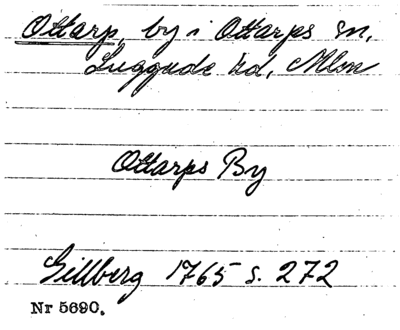 Ottarp, by i Ottarps sn,
Luggude hd, Mlm
Ottarps By
Gillberg 1765 s. 272
Nr 5690.